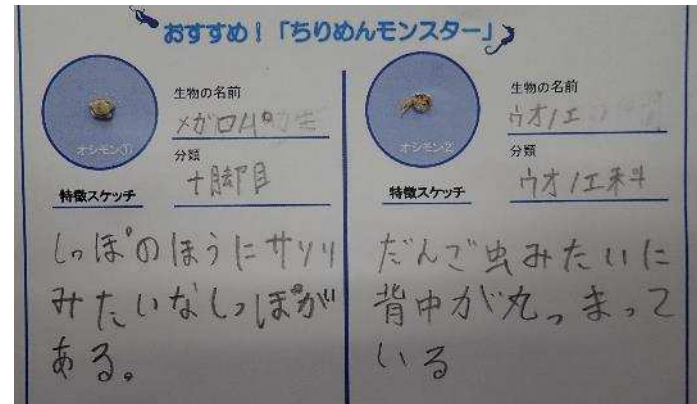 おすすめ！「ちりめんモンスター」
生物の名前
メガロパ
オシモン①
分類
十脚目
特徴スケッチ
しっぽのほうにサソリ
みたいなしっぽが
ある。
生物の名前
ウオノエ
オシモン②
分類
ウオノエ科
特徴スケッチ
だんご虫みたいに
背中が丸っまって
いる